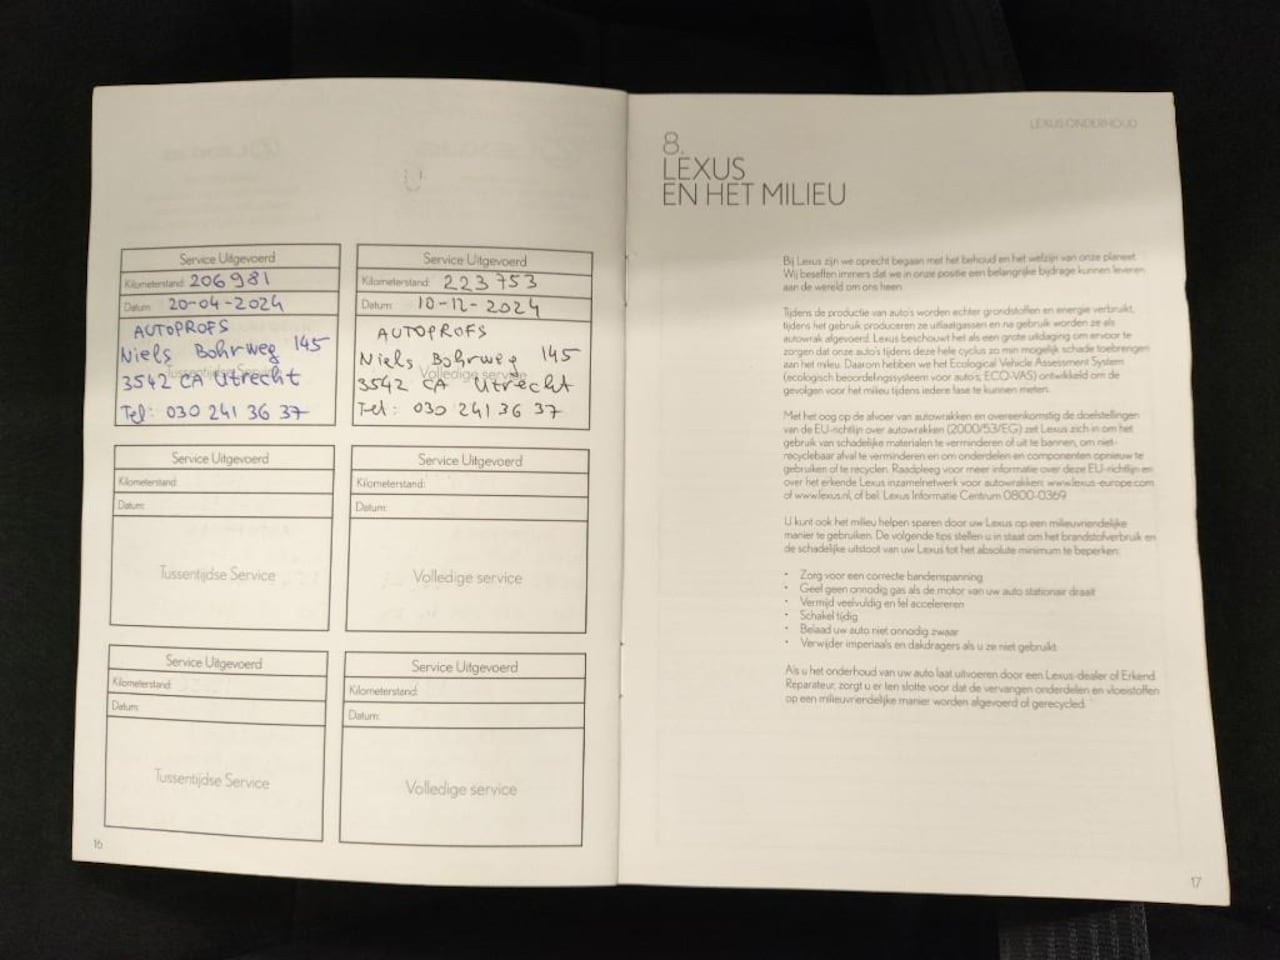 Service Uitgevoerd
Kilometerstand: 206981
Datum: 20-04-2024
AUTOPROFS
Niels Bohrweg 145
3542 CA Utrecht
Tussentijdse Service
Tel: 030 241 36 37
Service Uitgevoerd
Kilometerstand: 223753
Datum: 10-12-2024
AUTOPROFS
Niels Bohrweg 145
3542 CA Utrecht
Volledige service
Tel: 030 241 36 37
Service Uitgevoerd
Kilometerstand:
Datum:
Tussentijdse Service
Service Uitgevoerd
Kilometerstand:
Datum:
Volledige service
Service Uitgevoerd
Kilometerstand:
Datum:
Tussentijdse Service
Service Uitgevoerd
Kilometerstand:
Datum:
Volledige service
16
LEXUS ONDERHOUD
8.
LEXUS
EN HET MILIEU
Bij Lexus zijn we oprecht begaan met het behoud en het welzijn van onze planeet.
Wij beseffen immers dat we in onze positie een belangrijke bijdrage kunnen leveren
aan de wereld om ons heen.
Tijdens de productie van auto's worden echter grondstoffen en energie verbruikt,
tijdens het gebruik produceren ze uitlaatgassen en na gebruik worden ze als
autowrak afgevoerd. Lexus beschouwt het als een grote uitdaging om ervoor te
zorgen dat onze auto's tijdens deze hele cyclus zo min mogelijk schade toebrengen
aan het milieu. Daarom hebben we het Ecological Vehicle Assessment System
(ecologisch beoordelingssysteem voor auto's, ECO-VAS) ontwikkeld om de
gevolgen voor het milieu tijdens iedere fase te kunnen meten.
Met het oog op de afvoer van autowrakken en overeenkomstig de doelstellingen
van de EU-richtlijn over autowrakken (2000/53/EG) zet Lexus zich in om het
gebruik van schadelijke materialen te verminderen of uit te bannen, om niet-
recyclebaar afval te verminderen en om onderdelen en componenten opnieuw te
gebruiken of te recyclen. Raadpleeg voor meer informatie over deze EU-richtlijn en
over het erkende Lexus inzamelnetwerk voor autowrakken: www.lexus-europe.com
of www.lexus.nl, of bel: Lexus Informatie Centrum 0800-0369
U kunt ook het milieu helpen sparen door uw Lexus op een milieuvriendelijke
manier te gebruiken. De volgende tips stellen u in staat om het brandstofverbruik en
de schadelijke uitstoot van uw Lexus tot het absolute minimum te beperken:
• Zorg voor een correcte bandenspanning
• Geef geen onnodig gas als de motor van uw auto stationair draait
• Vermijd veelvuldig en fel accelereren
• Schakel tijdig
• Belaad uw auto niet onnodig zwaar
• Verwijder imperiaals en dakdragers als u ze niet gebruikt
Als u het onderhoud van uw auto laat uitvoeren door een Lexus-dealer of Erkend
Reparateur, zorgt u er ten slotte voor dat de vervangen onderdelen en vloeistoffen
op een milieuvriendelijke manier worden afgevoerd of gerecycled.
17